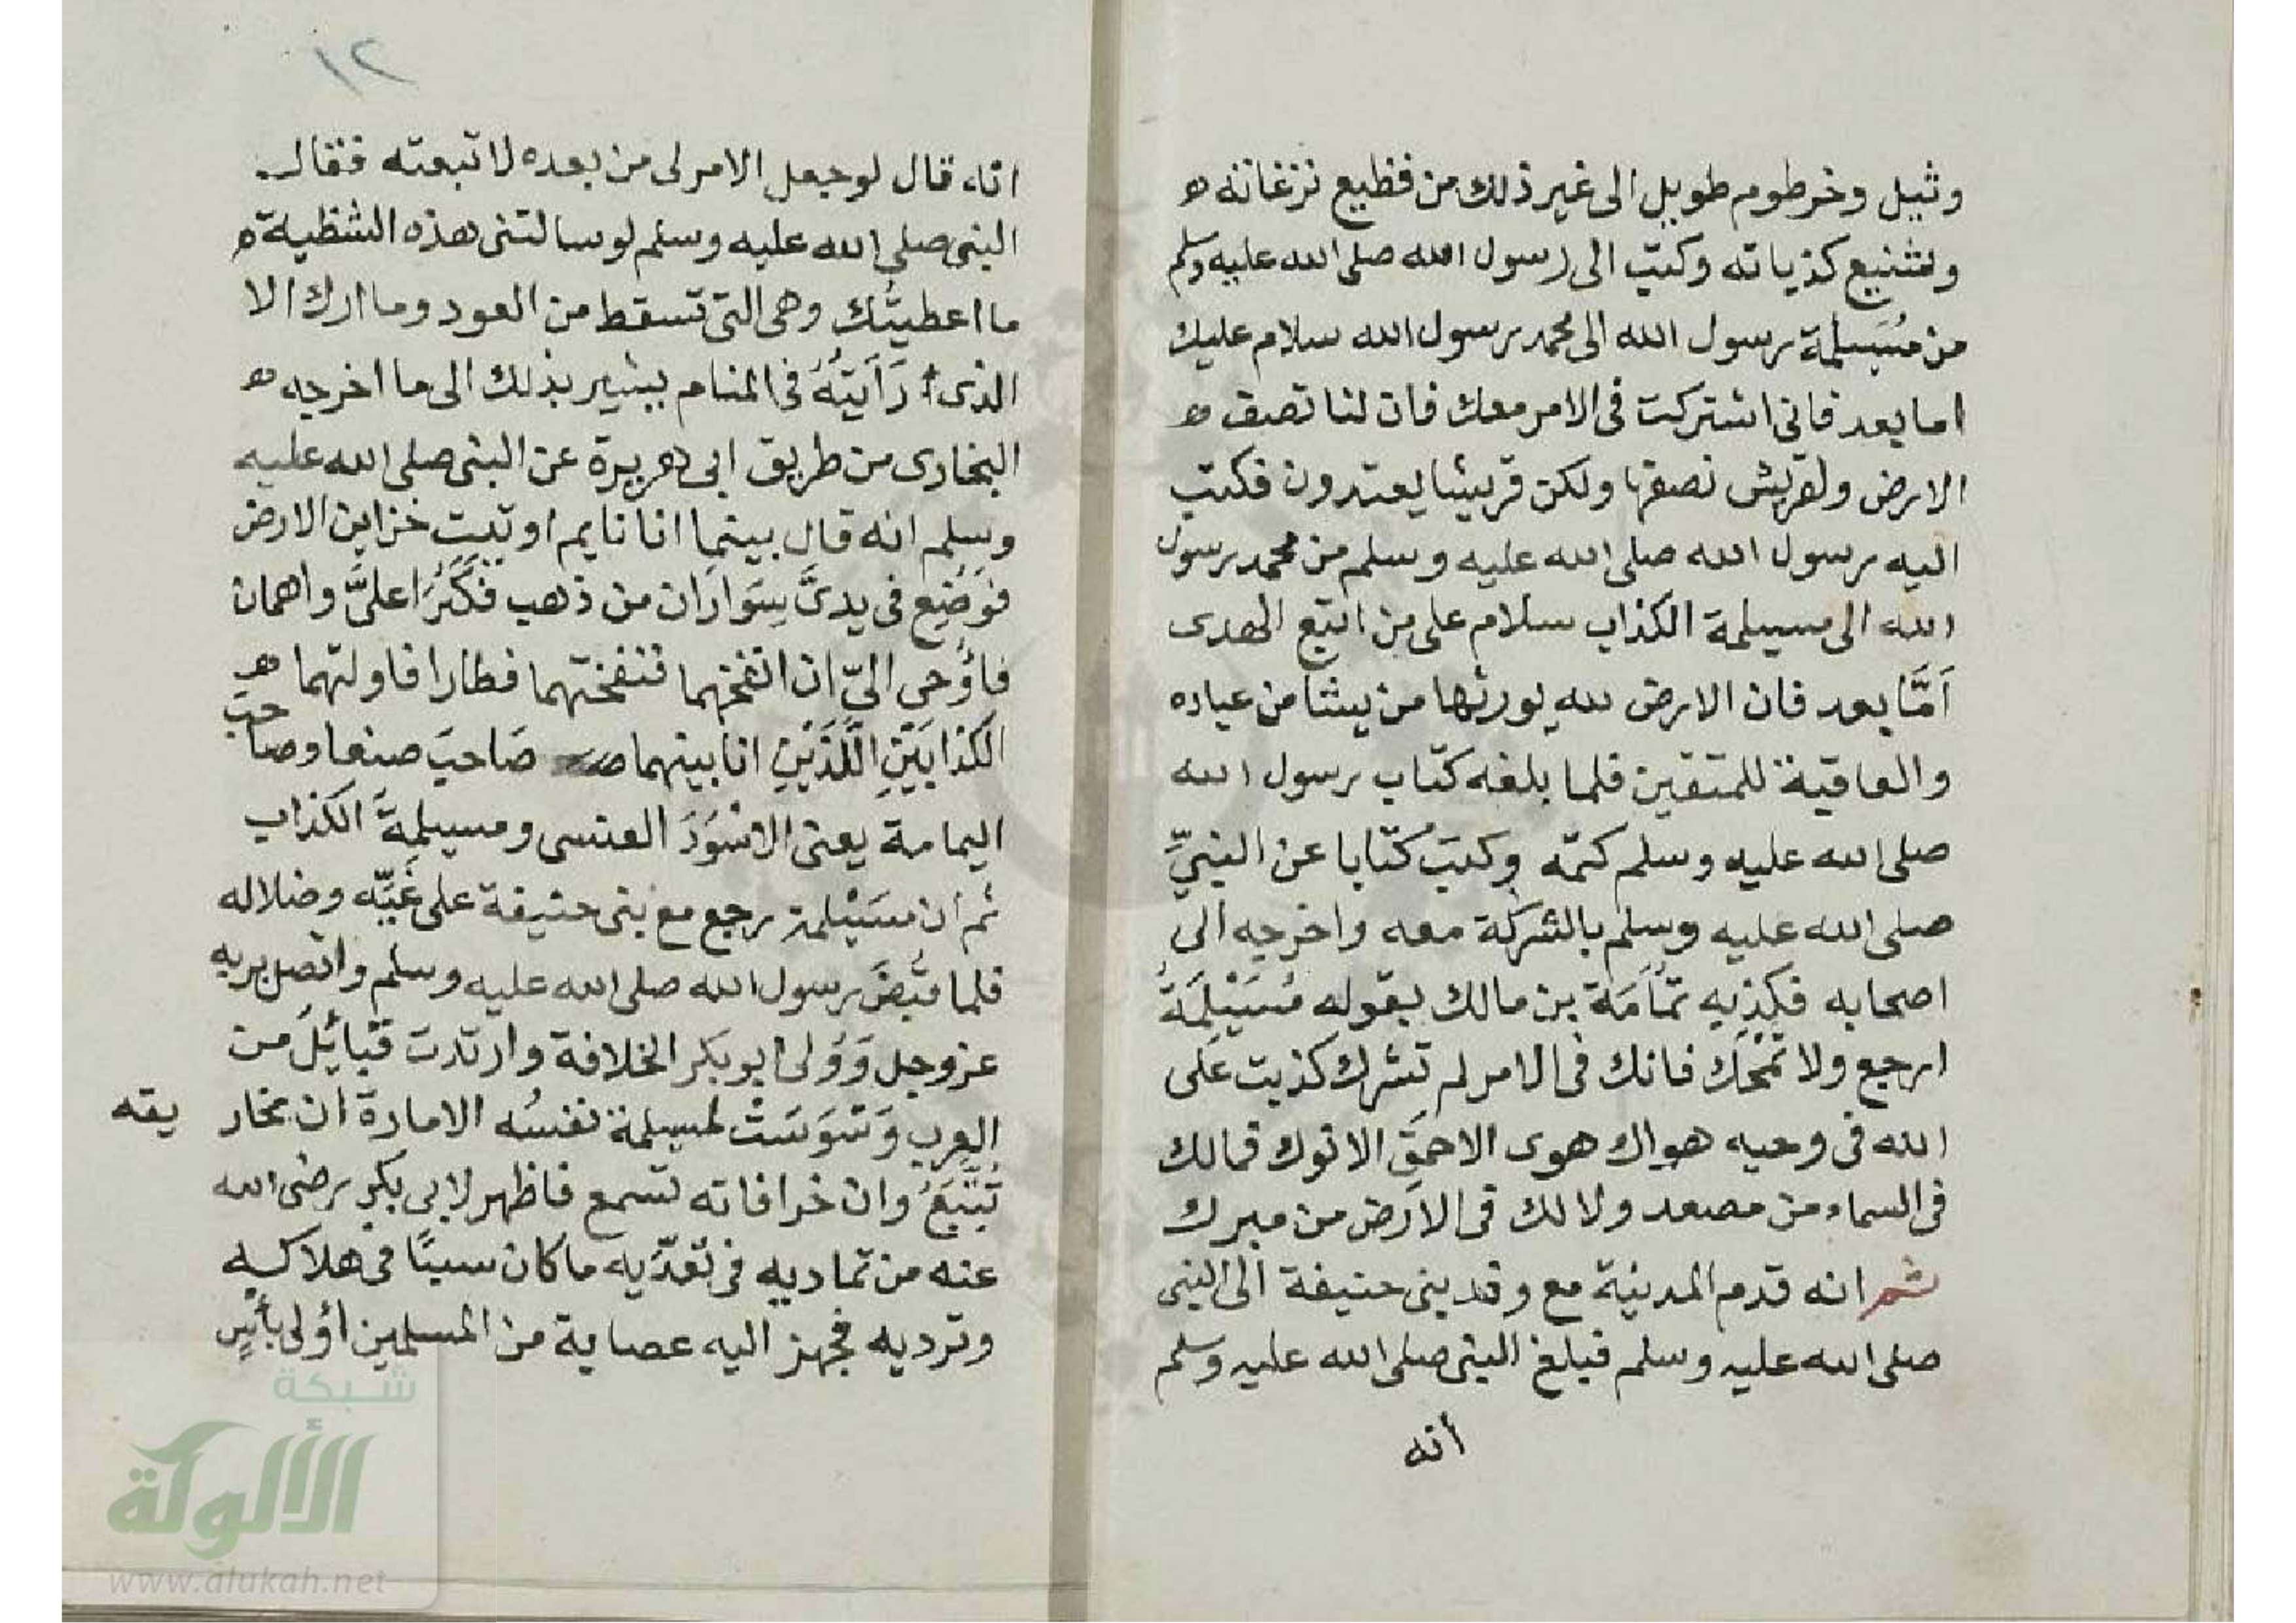 وثيل وخرطوم طويل الى غير ذلك من فظيع نزغاته ه
وشنيع كذباته وكتب الى رسول الله صلى الله عليه وسلم
من مُسَيلمة رسول الله الى محمد رسول الله سلام عليك
اما بعد فانى اشتركت فى الامر معك فان لنا نصف ه
الارض ولقريش نصفها ولكن قريشا يعتدون فكتب
اليه رسول الله صلى الله عليه وسلم من محمد رسول
الله الى مسيلمة الكذاب سلام على من اتبع الهدى
اَمَّا بعد فان الارض لله يورثها من يشا من عباده
والعاقبة للمتقين فلما بلغه كتاب رسول الله
صلى الله عليه وسلم كتمه وكتبَ كتابا عن النبيِّ
صلى الله عليه وسلم بالشركة معه واخرجه الى
اصحابه فكذبه ثمُاَمَة بن مالك بقوله مُسَيْلِمَةُ
ارجع ولا تَمْحَك فانك فى الامر لم تشرك كذبت عَلَى
الله فى وحيه هواك هوى الاحمَقِ الانوك فمالك
فى السماء من مصعد ولا لك فى الارض من مبرك
ثم انه قدم المدينة مع وفد بنى حنيفة الى النبى
صلى الله عليه وسلم فبلغ النبى صلى الله عليه وسلم
أنه
١٢
انه قال لو جعل الامر لى من بعده لاتبعته فقال
النبى صلى الله عليه وسلم لو سالتنى هذه الشظية ه
ما اعطيتُك وهى التى تسقط من العود وما اراك الا
الذى رَاَيتُهُ فى المنام يشير بذلك الى ما اخرجه ه
البخارى من طريق ابى هريرة عن النبى صلى الله عليه
وسلم انه قال بينما انا نايم اوتيت خزاين الارض
فوُضِع فى يدىَّ سِوَارَان من ذهب فكَبُرَا علىَّ واهمان
فاؤُحى الىّ ان انفخهما فنفختهما فطارا فاولتهما ه
الكذابَيْنِ اللَّذَيْنِ انا بينهما صَاحبَ صنعا وصاحبَ
اليمامة يعنى الاسْوَدَ العنسى ومسيلمةَ الكذاب
ثم ان مسَيْلمة رجع مع بنى حنيفة على غَيِّه وضلاله
فلما قُبِضَ رسول الله صلى الله عليه وسلم واتصل بربه
عز وجل وَوُلى ابو بكر الخلافة وارتدت قبائِلَ من
العرب وَسْوَسَتْ لمسيلمة نفسُه الامارة ان مخاريقه
تُتَّبَعُ وان خرافاته تسمع فاظهر لابى بكر رضى الله
عنه من تماديه فى تَعَدِّيه ما كان سببًا فى هلاكه
وترديه فجهز اليه عصابة من المسلمين أولى بأسٍ
شبكة
الألوكة
www.alukah.net